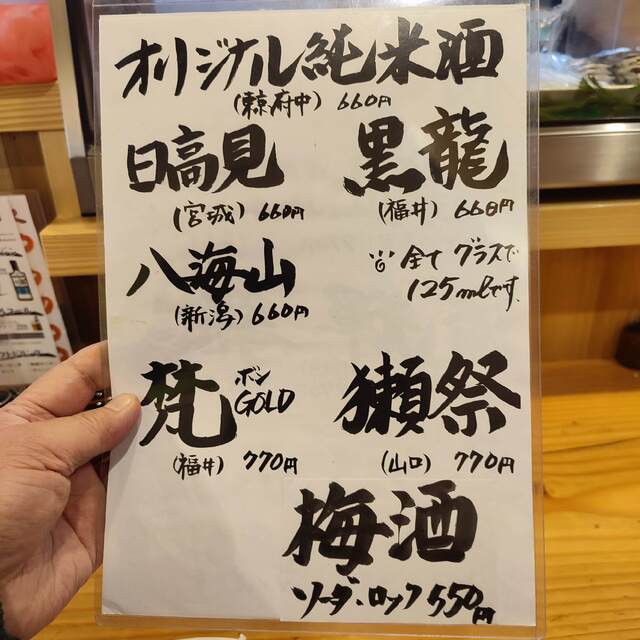 オリジナル純米酒
(東京府中) 660円
日高見
(宮城) 660円
黒龍
(福井) 660円
八海山
(新潟) 660円
全て グラスで
125mlです。
梵 ボン GOLD
(福井) 770円
獺祭
(山口) 770円
梅酒
ソーダ・ロック 550円